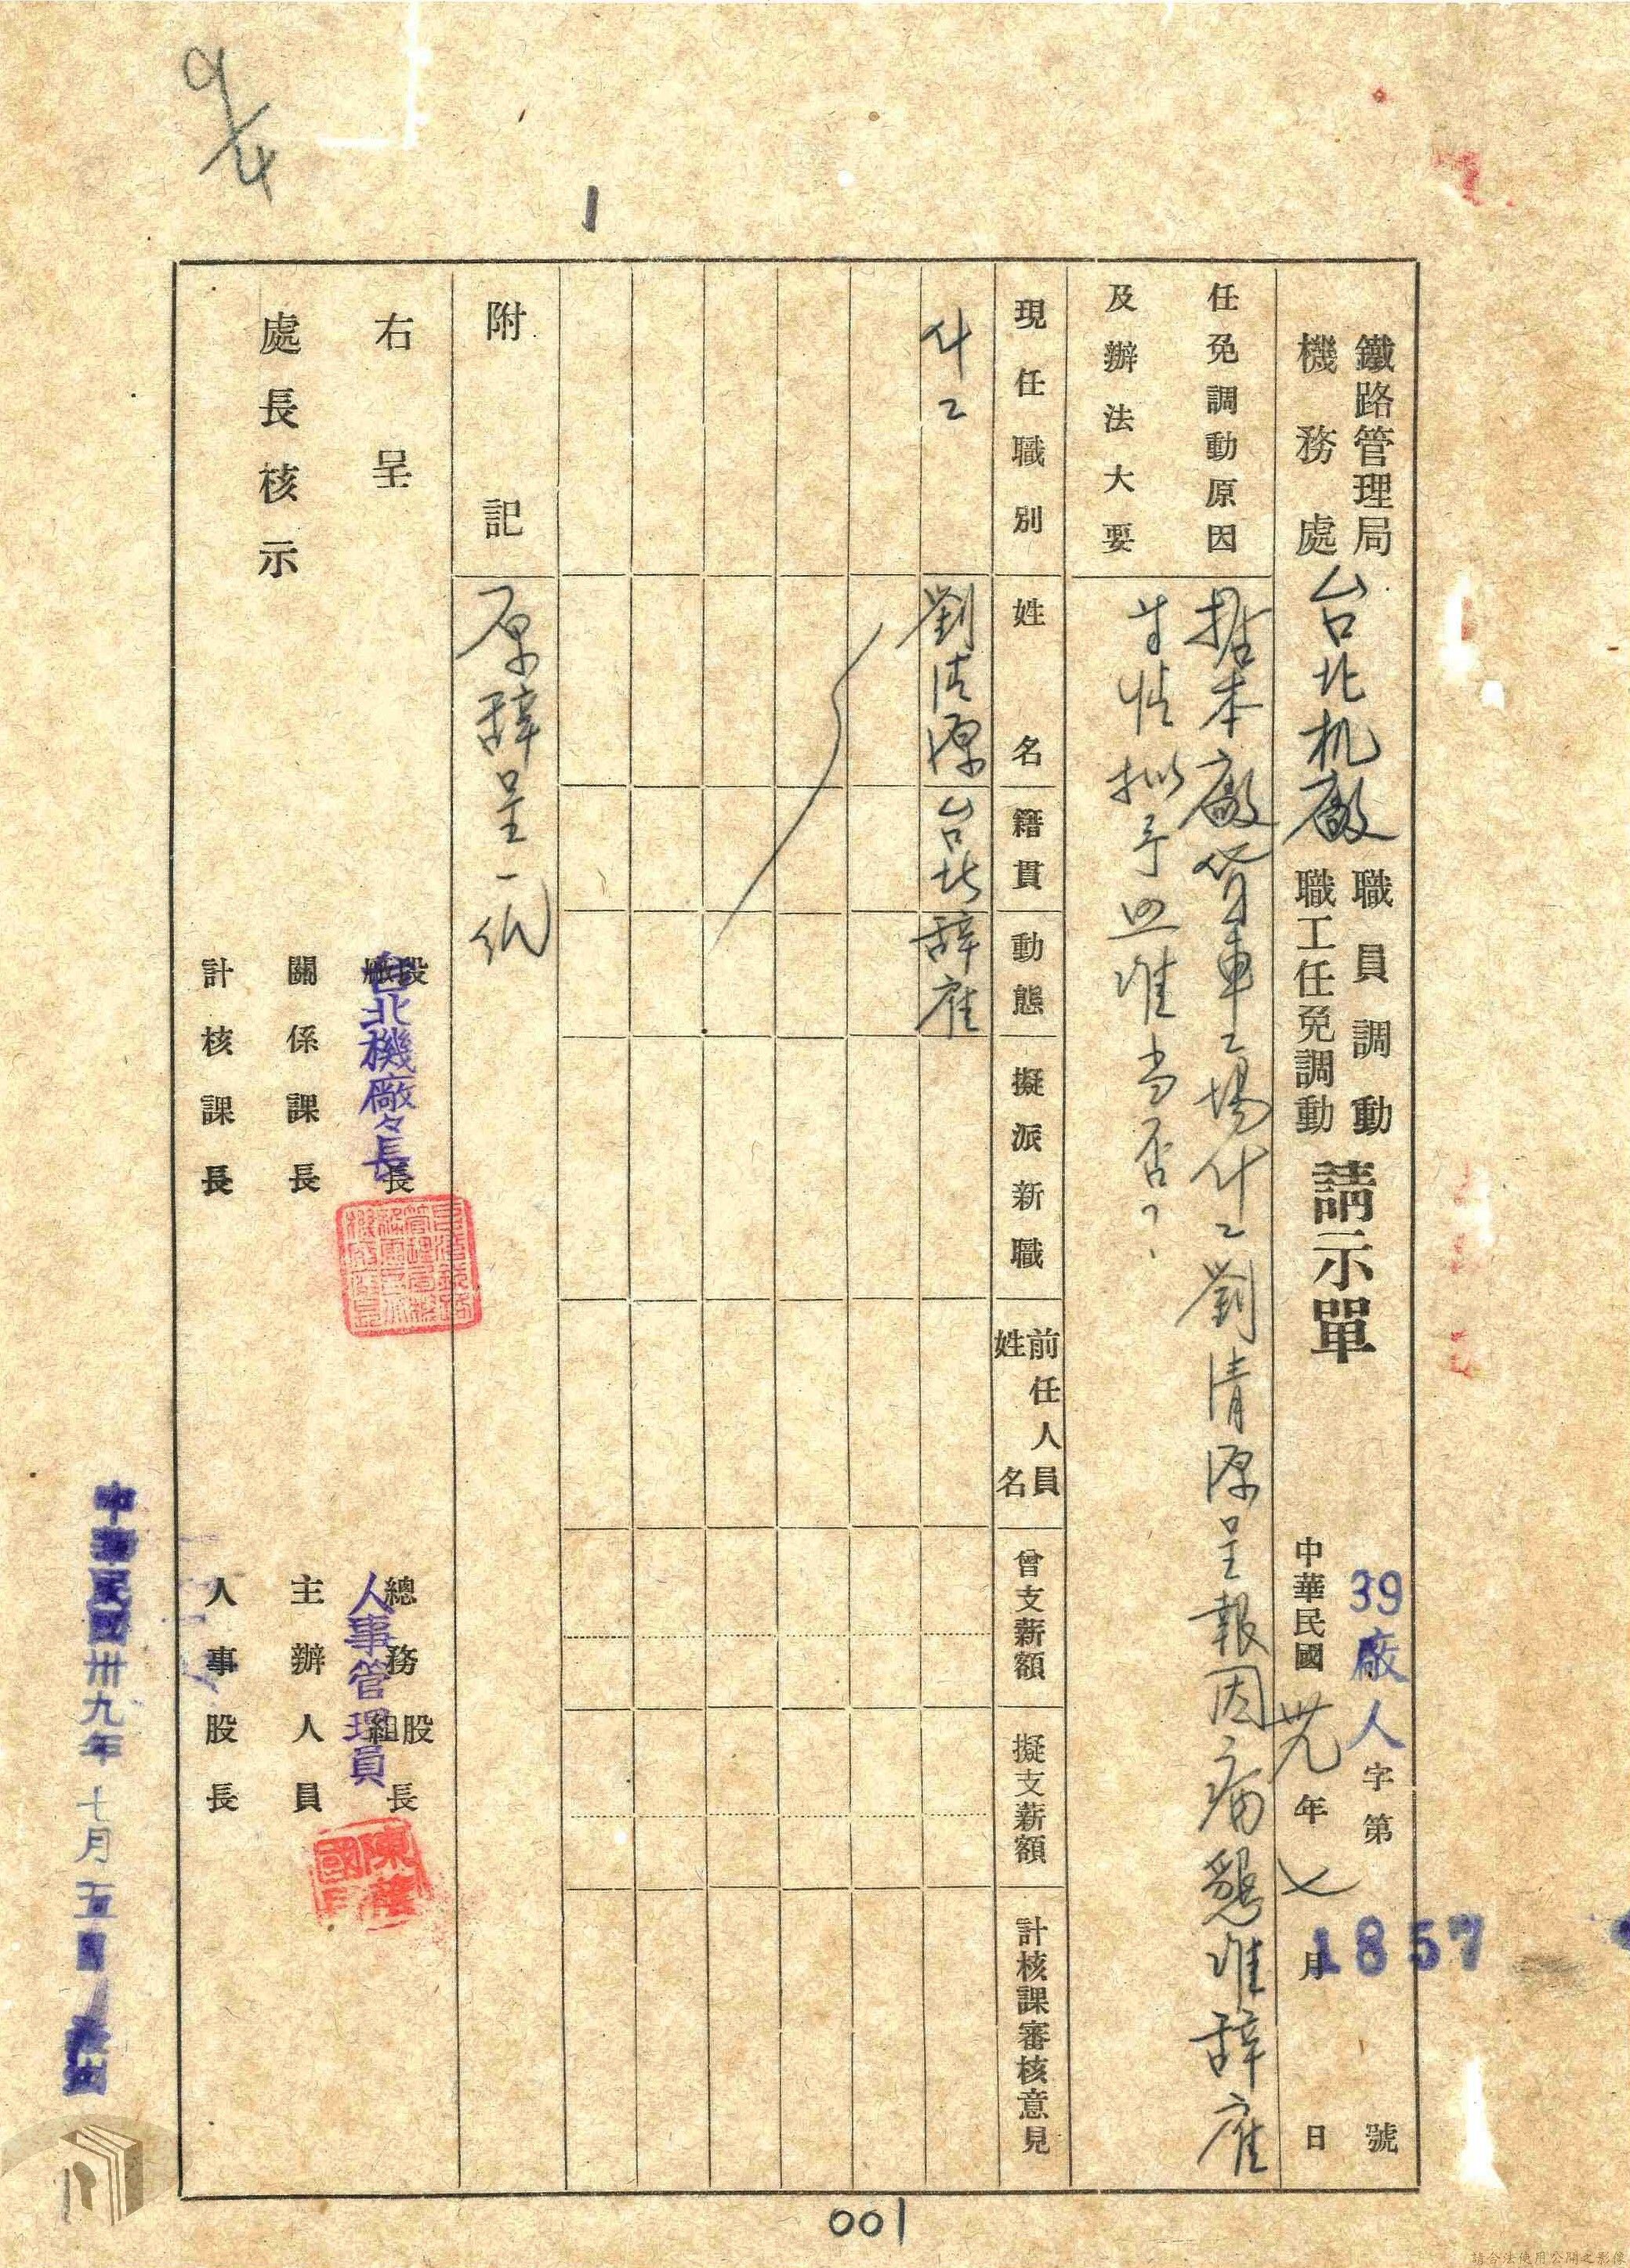 9/4
1
鐵路管理局
機務處
台北机廠
職員調動
職工任免調動
請示單
39廠人字第1857號
中華民國卅九年七月 日
任免調動原因
及辦法大要
據本廠貨車工場什工劉清源呈報因病懇准辞雇
甘情拟予照准当否?
現任職別
姓名
籍貫
動態
擬派新職
前任人員
姓名
曾支薪額
擬支薪額
計核課審核意見
什工
劉清源
台北
辞雇
附記
原辞呈一紙
右呈
處長核示
段
長
台北機廠々長
總務
組股
長
人事管理員
關係課長
主辦人員
計核課長
人事股長
中華民國卅九年七月五日
001
請合法使用公開之影像